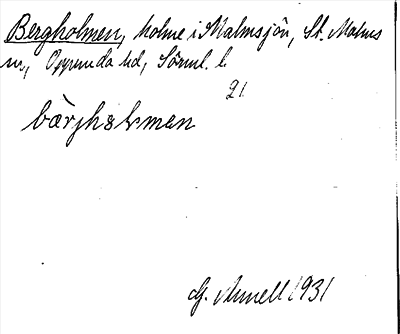 Bergholmen, holme i Malmsjön, St. Malms
sn, Oppunda hd, Sörml. l.
21.
bärjhålmen
G. Ahnell 1931